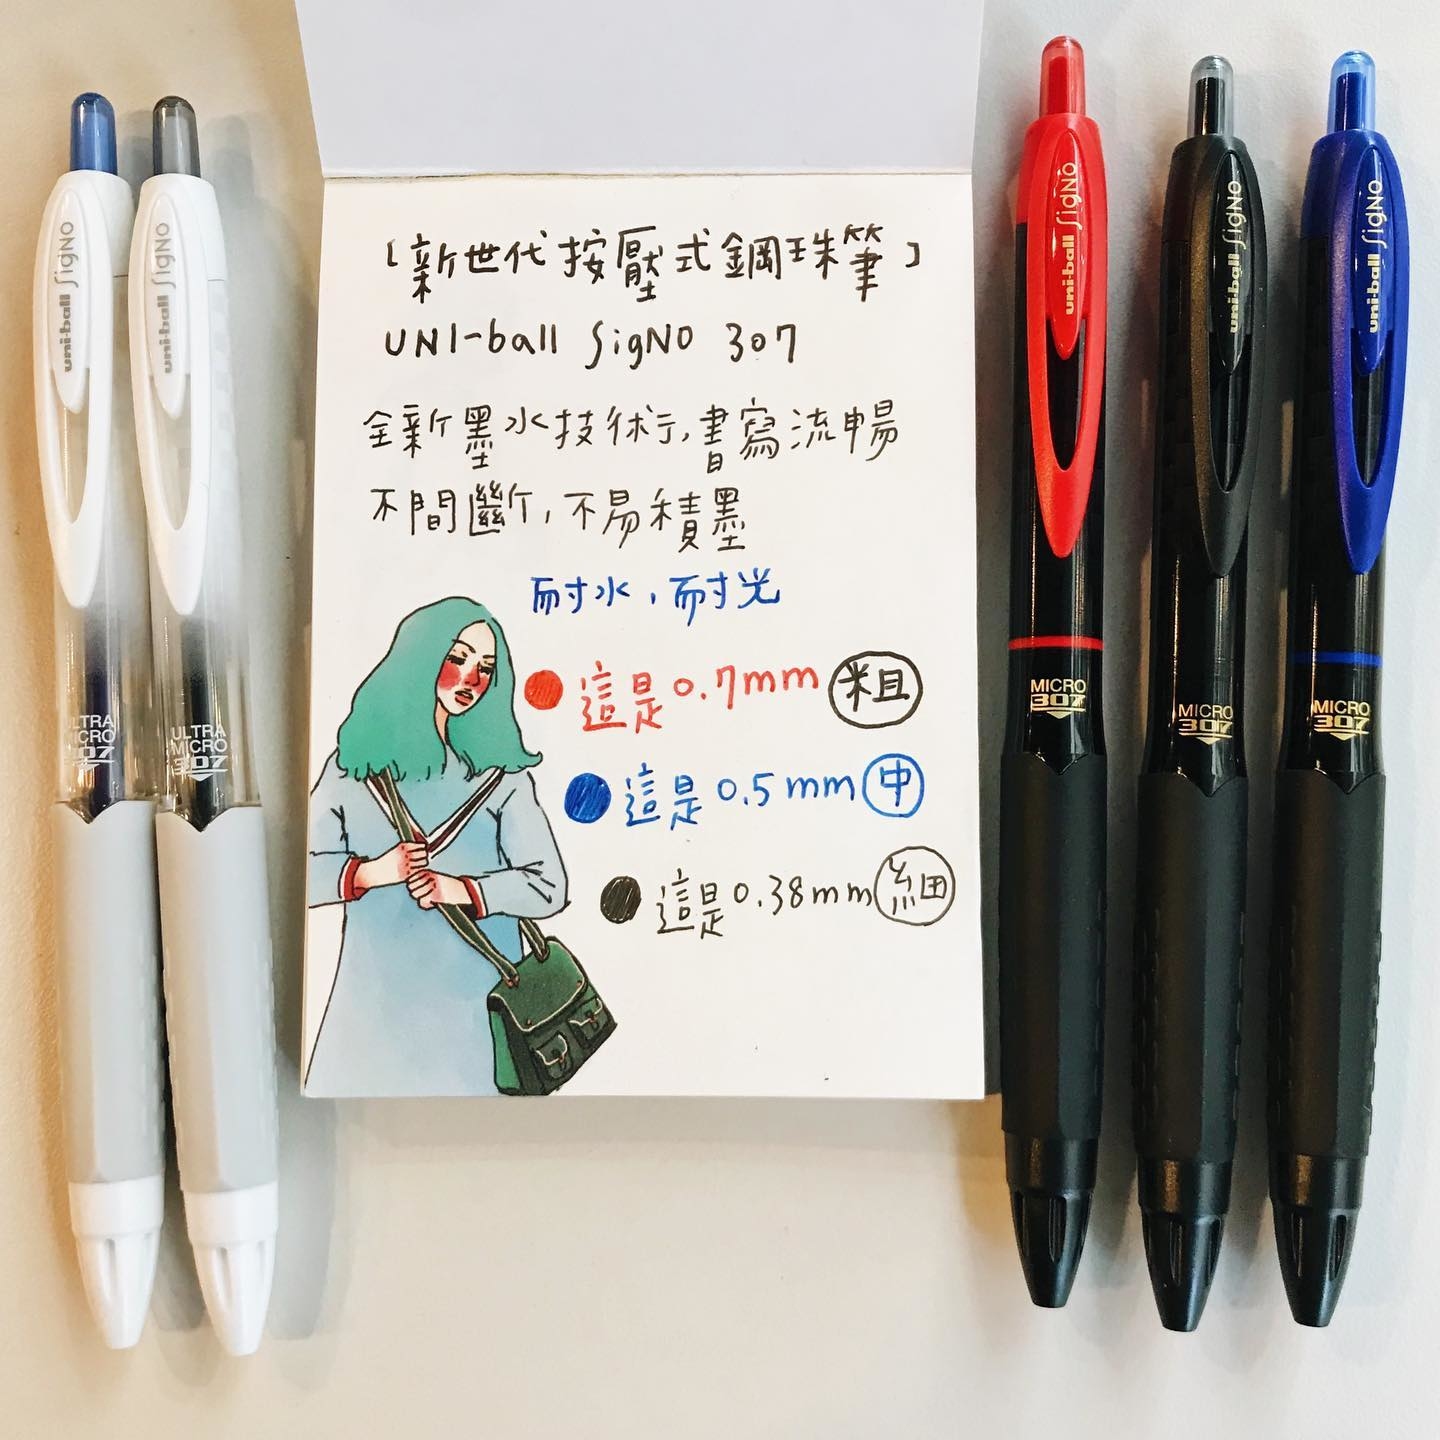 [新世代按壓式鋼珠筆]
UNI-ball SigNO 307
全新墨水技術,書寫流暢
不間斷,不易積墨
耐水,耐光
這是0.7mm 粗
這是0.5mm 中
這是0.38mm 細
uni-ball SigNO
ULTRA
MICRO
307
uni-ball SigNO
ULTRA
MICRO
307
uni-ball SigNO
MICRO
307
uni-ball SigNO
MICRO
307
uni-ball SigNO
MICRO
307